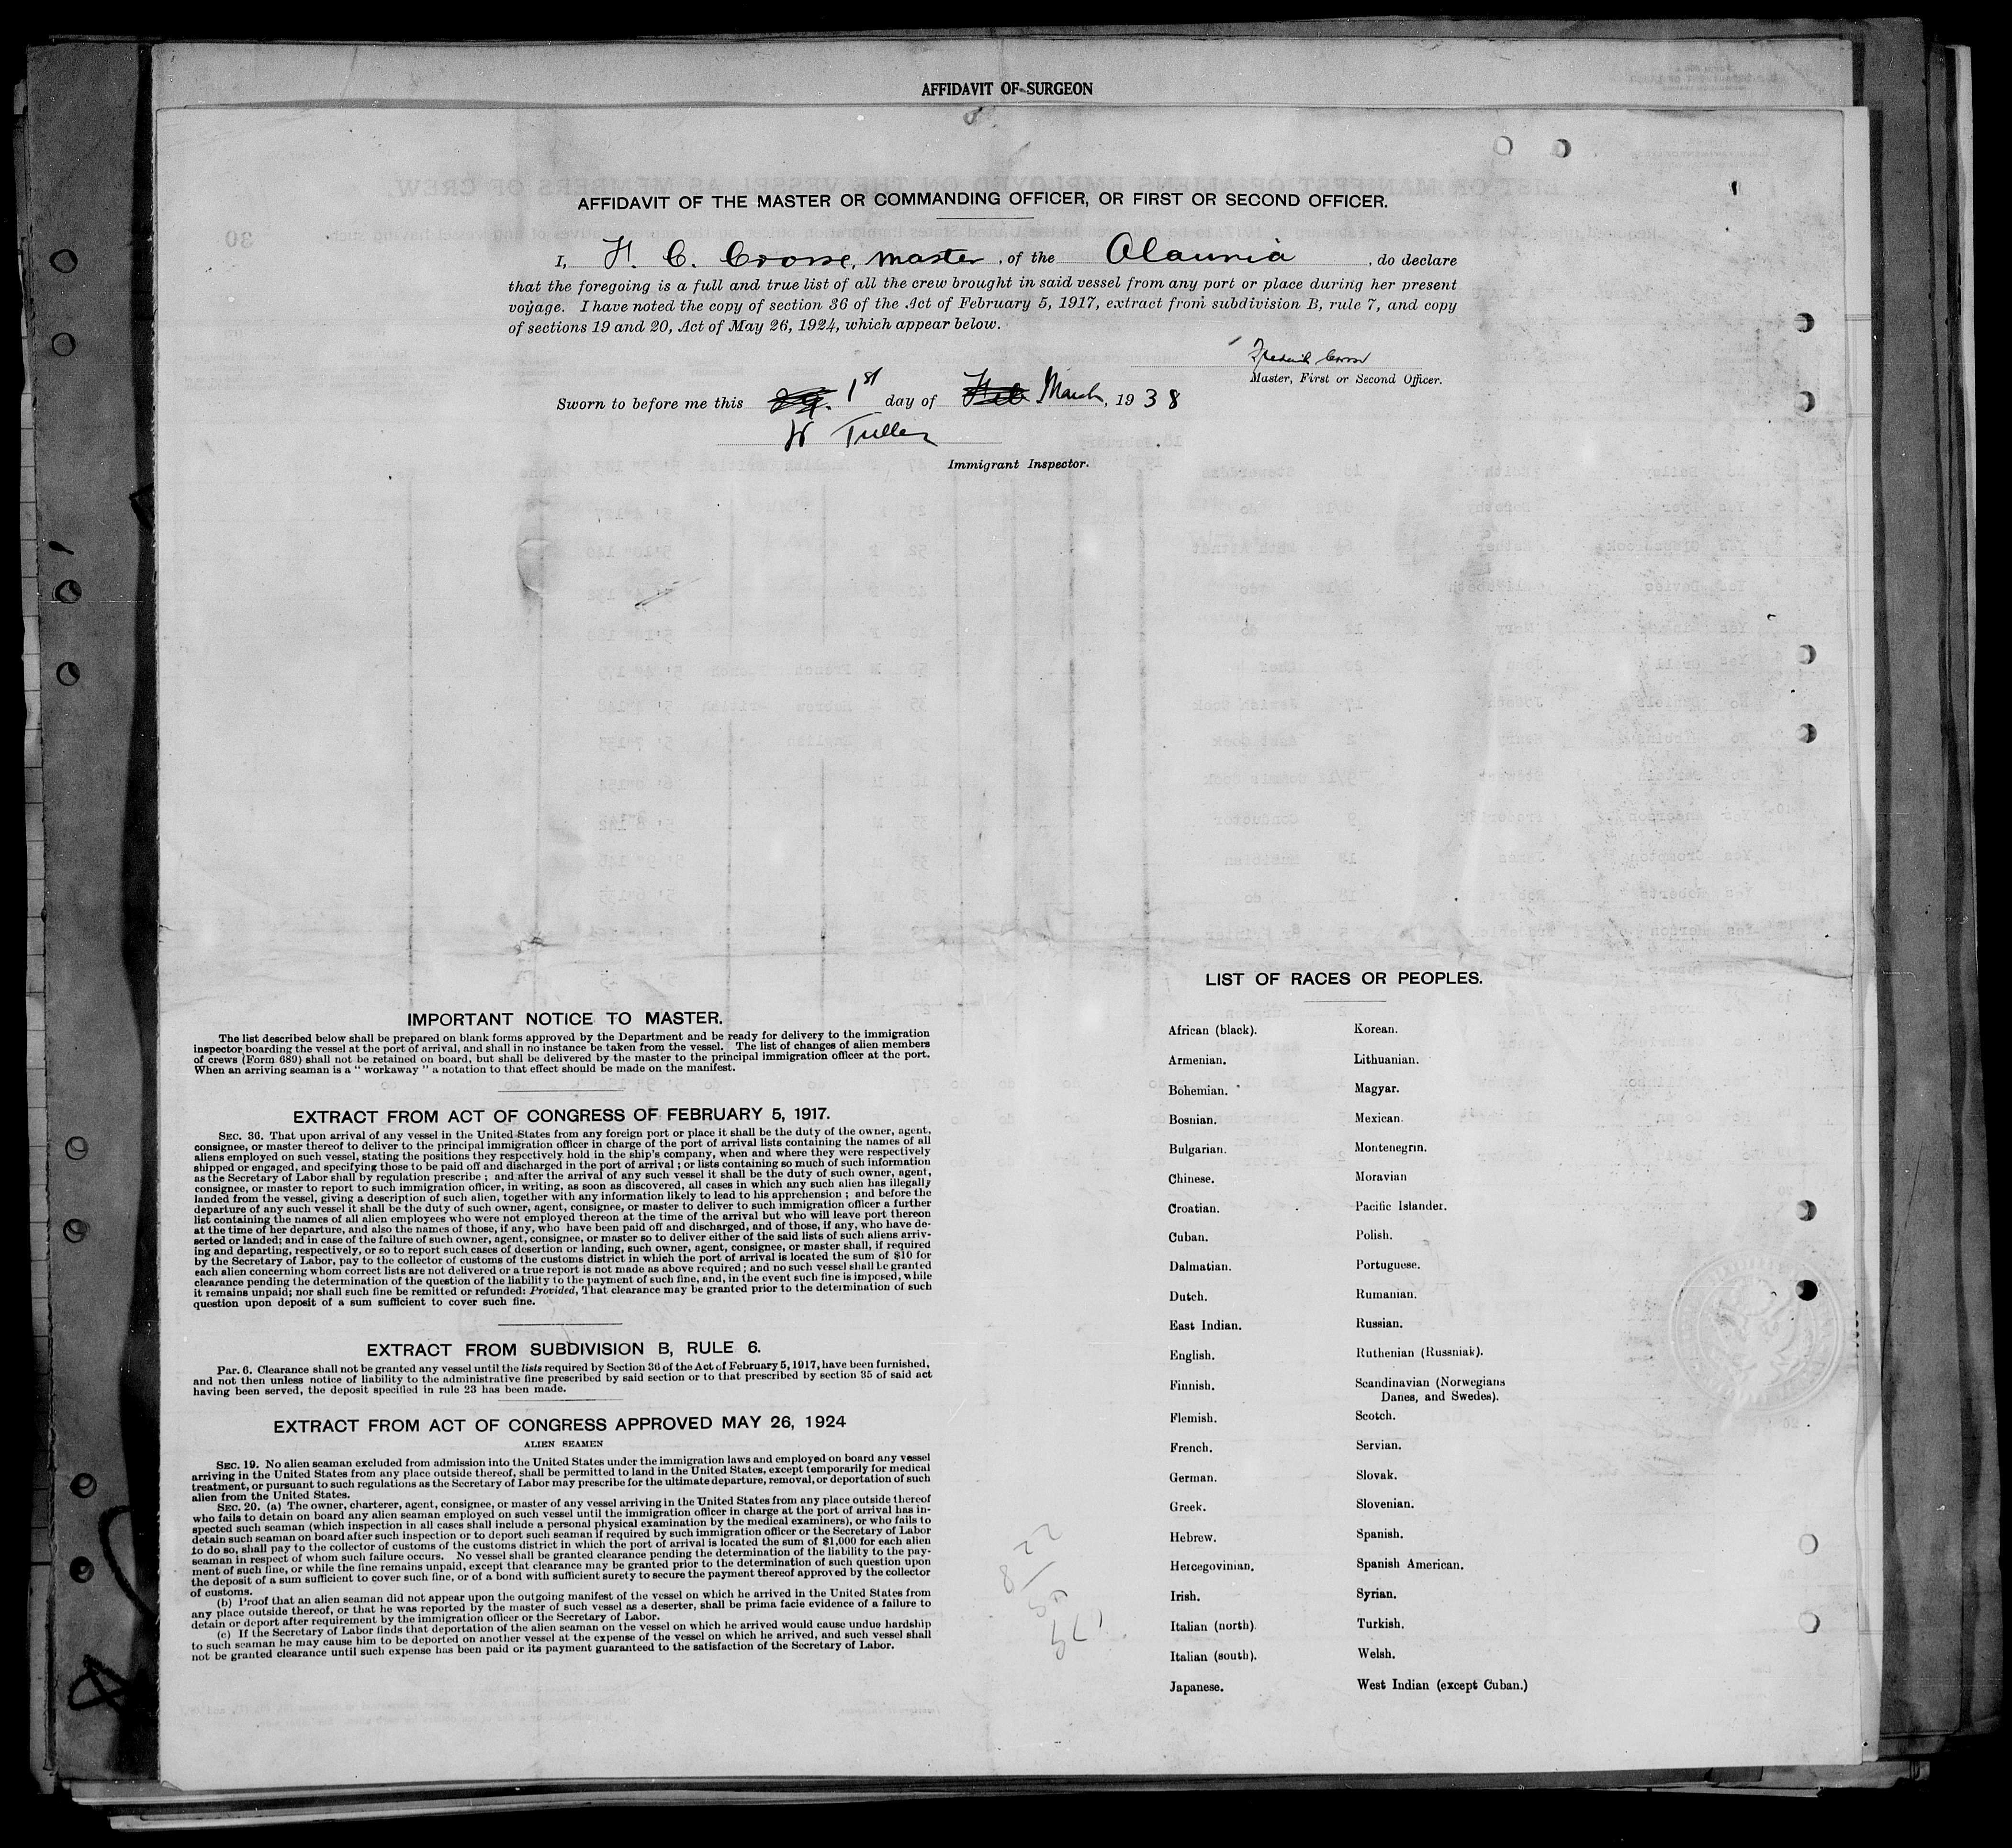 AFFIDAVIT OF SURGEON
AFFIDAVIT OF THE MASTER OR COMMANDING OFFICER, OR FIRST OR SECOND OFFICER.
I, master, of the Alaunia, do declare
that the foregoing is a full and true list of all the crew brought in said vessel from any port or place during her present
voyage. I have noted the copy of section 36 of the Act of February 5, 1917, extract from subdivision B, rule 7, and copy
of sections 19 and 20, Act of May 26, 1924, which appear below.
Master, First or Second Officer.
Sworn to before me this 1st day of March, 1938
Immigrant Inspector.
IMPORTANT NOTICE TO MASTER.
The list described below shall be prepared on blank forms approved by the Department and be ready for delivery to the immigration
inspector boarding the vessel at the port of arrival, and shall in no instance be taken from the vessel. The list of changes of alien members
of crews (Form 689) shall not be retained on board, but shall be delivered by the master to the principal immigration officer at the port.
When an arriving seaman is a “ workaway ” a notation to that effect should be made on the manifest.
EXTRACT FROM ACT OF CONGRESS OF FEBRUARY 5, 1917.
SEC. 36. That upon arrival of any vessel in the United States from any foreign port or place it shall be the duty of the owner, agent,
consignee, or master thereof to deliver to the principal immigration officer in charge of the port of arrival lists containing the names of all
aliens employed on such vessel, stating the positions they respectively hold in the ship's company, when and where they were respectively
shipped or engaged, and specifying those to be paid off and discharged in the port of arrival ; or lists containing so much of such information
as the Secretary of Labor shall by regulation prescribe ; and after the arrival of any such vessel it shall be the duty of such owner, agent,
consignee, or master to report to such immigration officer, in writing, as soon as discovered, all cases in which any such alien has illegally
landed from the vessel, giving a description of such alien, together with any information likely to lead to his apprehension ; and before the
departure of any such vessel it shall be the duty of such owner, agent, consignee, or master to deliver to such immigration officer a further
list containing the names of all alien employees who were not employed thereon at the time of the arrival but who will leave port thereon
at the time of her departure, and also the names of those, if any, who have been paid off and discharged, and of those, if any, who have de-
serted or landed; and in case of the failure of such owner, agent, consignee, or master so to deliver either of the said lists of such aliens arriv-
ing and departing, respectively, or so to report such cases of desertion or landing, such owner, agent, consignee, or master shall, if required
by the Secretary of Labor, pay to the collector of customs of the customs district in which the port of arrival is located the sum of $10 for
each alien concerning whom correct lists are not delivered or a true report is not made as above required ; and no such vessel shall be granted
clearance pending the determination of the question of the liability to the payment of such fine, and, in the event such fine is imposed, while
it remains unpaid; nor shall such fine be remitted or refunded: Provided, That clearance may be granted prior to the determination of such
question upon deposit of a sum sufficient to cover such fine.
EXTRACT FROM SUBDIVISION B, RULE 6.
Par. 6. Clearance shall not be granted any vessel until the lists required by Section 36 of the Act of February 5, 1917, have been furnished,
and not then unless notice of liability to the administrative fine prescribed by said section or to that prescribed by section 35 of said act
having been served, the deposit specified in rule 23 has been made.
EXTRACT FROM ACT OF CONGRESS APPROVED MAY 26, 1924
ALIEN SEAMEN
SEC. 19. No alien seaman excluded from admission into the United States under the immigration laws and employed on board any vessel
arriving in the United States from any place outside thereof, shall be permitted to land in the United States, except temporarily for medical
treatment, or pursuant to such regulations as the Secretary of Labor may prescribe for the ultimate departure, removal, or deportation of such
alien from the United States.
SEC. 20. (a) The owner, charterer, agent, consignee, or master of any vessel arriving in the United States from any place outside thereof
who fails to detain on board any alien seaman employed on such vessel until the immigration officer in charge at the port of arrival has in-
spected such seaman (which inspection in all cases shall include a personal physical examination by the medical examiners), or who fails to
detain such seaman on board after such inspection or to deport such seaman if required by such immigration officer or the Secretary of Labor
to do so, shall pay to the collector of customs of the customs district in which the port of arrival is located the sum of $1,000 for each alien
seaman in respect of whom such failure occurs. No vessel shall be granted clearance pending the determination of the liability to the pay-
ment of such fine, or while the fine remains unpaid, except that clearance may be granted prior to the determination of such question upon
the deposit of a sum sufficient to cover such fine, or of a bond with sufficient surety to secure the payment thereof approved by the collector
of customs.
(b) Proof that an alien seaman did not appear upon the outgoing manifest of the vessel on which he arrived in the United States from
any place outside thereof, or that he was reported by the master of such vessel as a deserter, shall be prima facie evidence of a failure to
detain or deport after requirement by the immigration officer or the Secretary of Labor.
(c) If the Secretary of Labor finds that deportation of the alien seaman on the vessel on which he arrived would cause undue hardship
to such seaman he may cause him to be deported on another vessel at the expense of the vessel on which he arrived, and such vessel shall
not be granted clearance until such expense has been paid or its payment guaranteed to the satisfaction of the Secretary of Labor.
LIST OF RACES OR PEOPLES.
African (black). Korean.
Armenian. Lithuanian.
Bohemian. Magyar.
Bosnian. Mexican.
Bulgarian. Montenegrin.
Chinese. Moravian
Croatian. Pacific Islander.
Cuban. Polish.
Dalmatian. Portuguese.
Dutch. Rumanian.
East Indian. Russian.
English. Ruthenian (Russniak).
Finnish. Scandinavian (Norwegians
Danes, and Swedes).
Flemish. Scotch.
French. Servian.
German. Slovak.
Greek. Slovenian.
Hebrew. Spanish.
Hercegovinian. Spanish American.
Irish. Syrian.
Italian (north). Turkish.
Italian (south). Welsh.
Japanese. West Indian (except Cuban.)